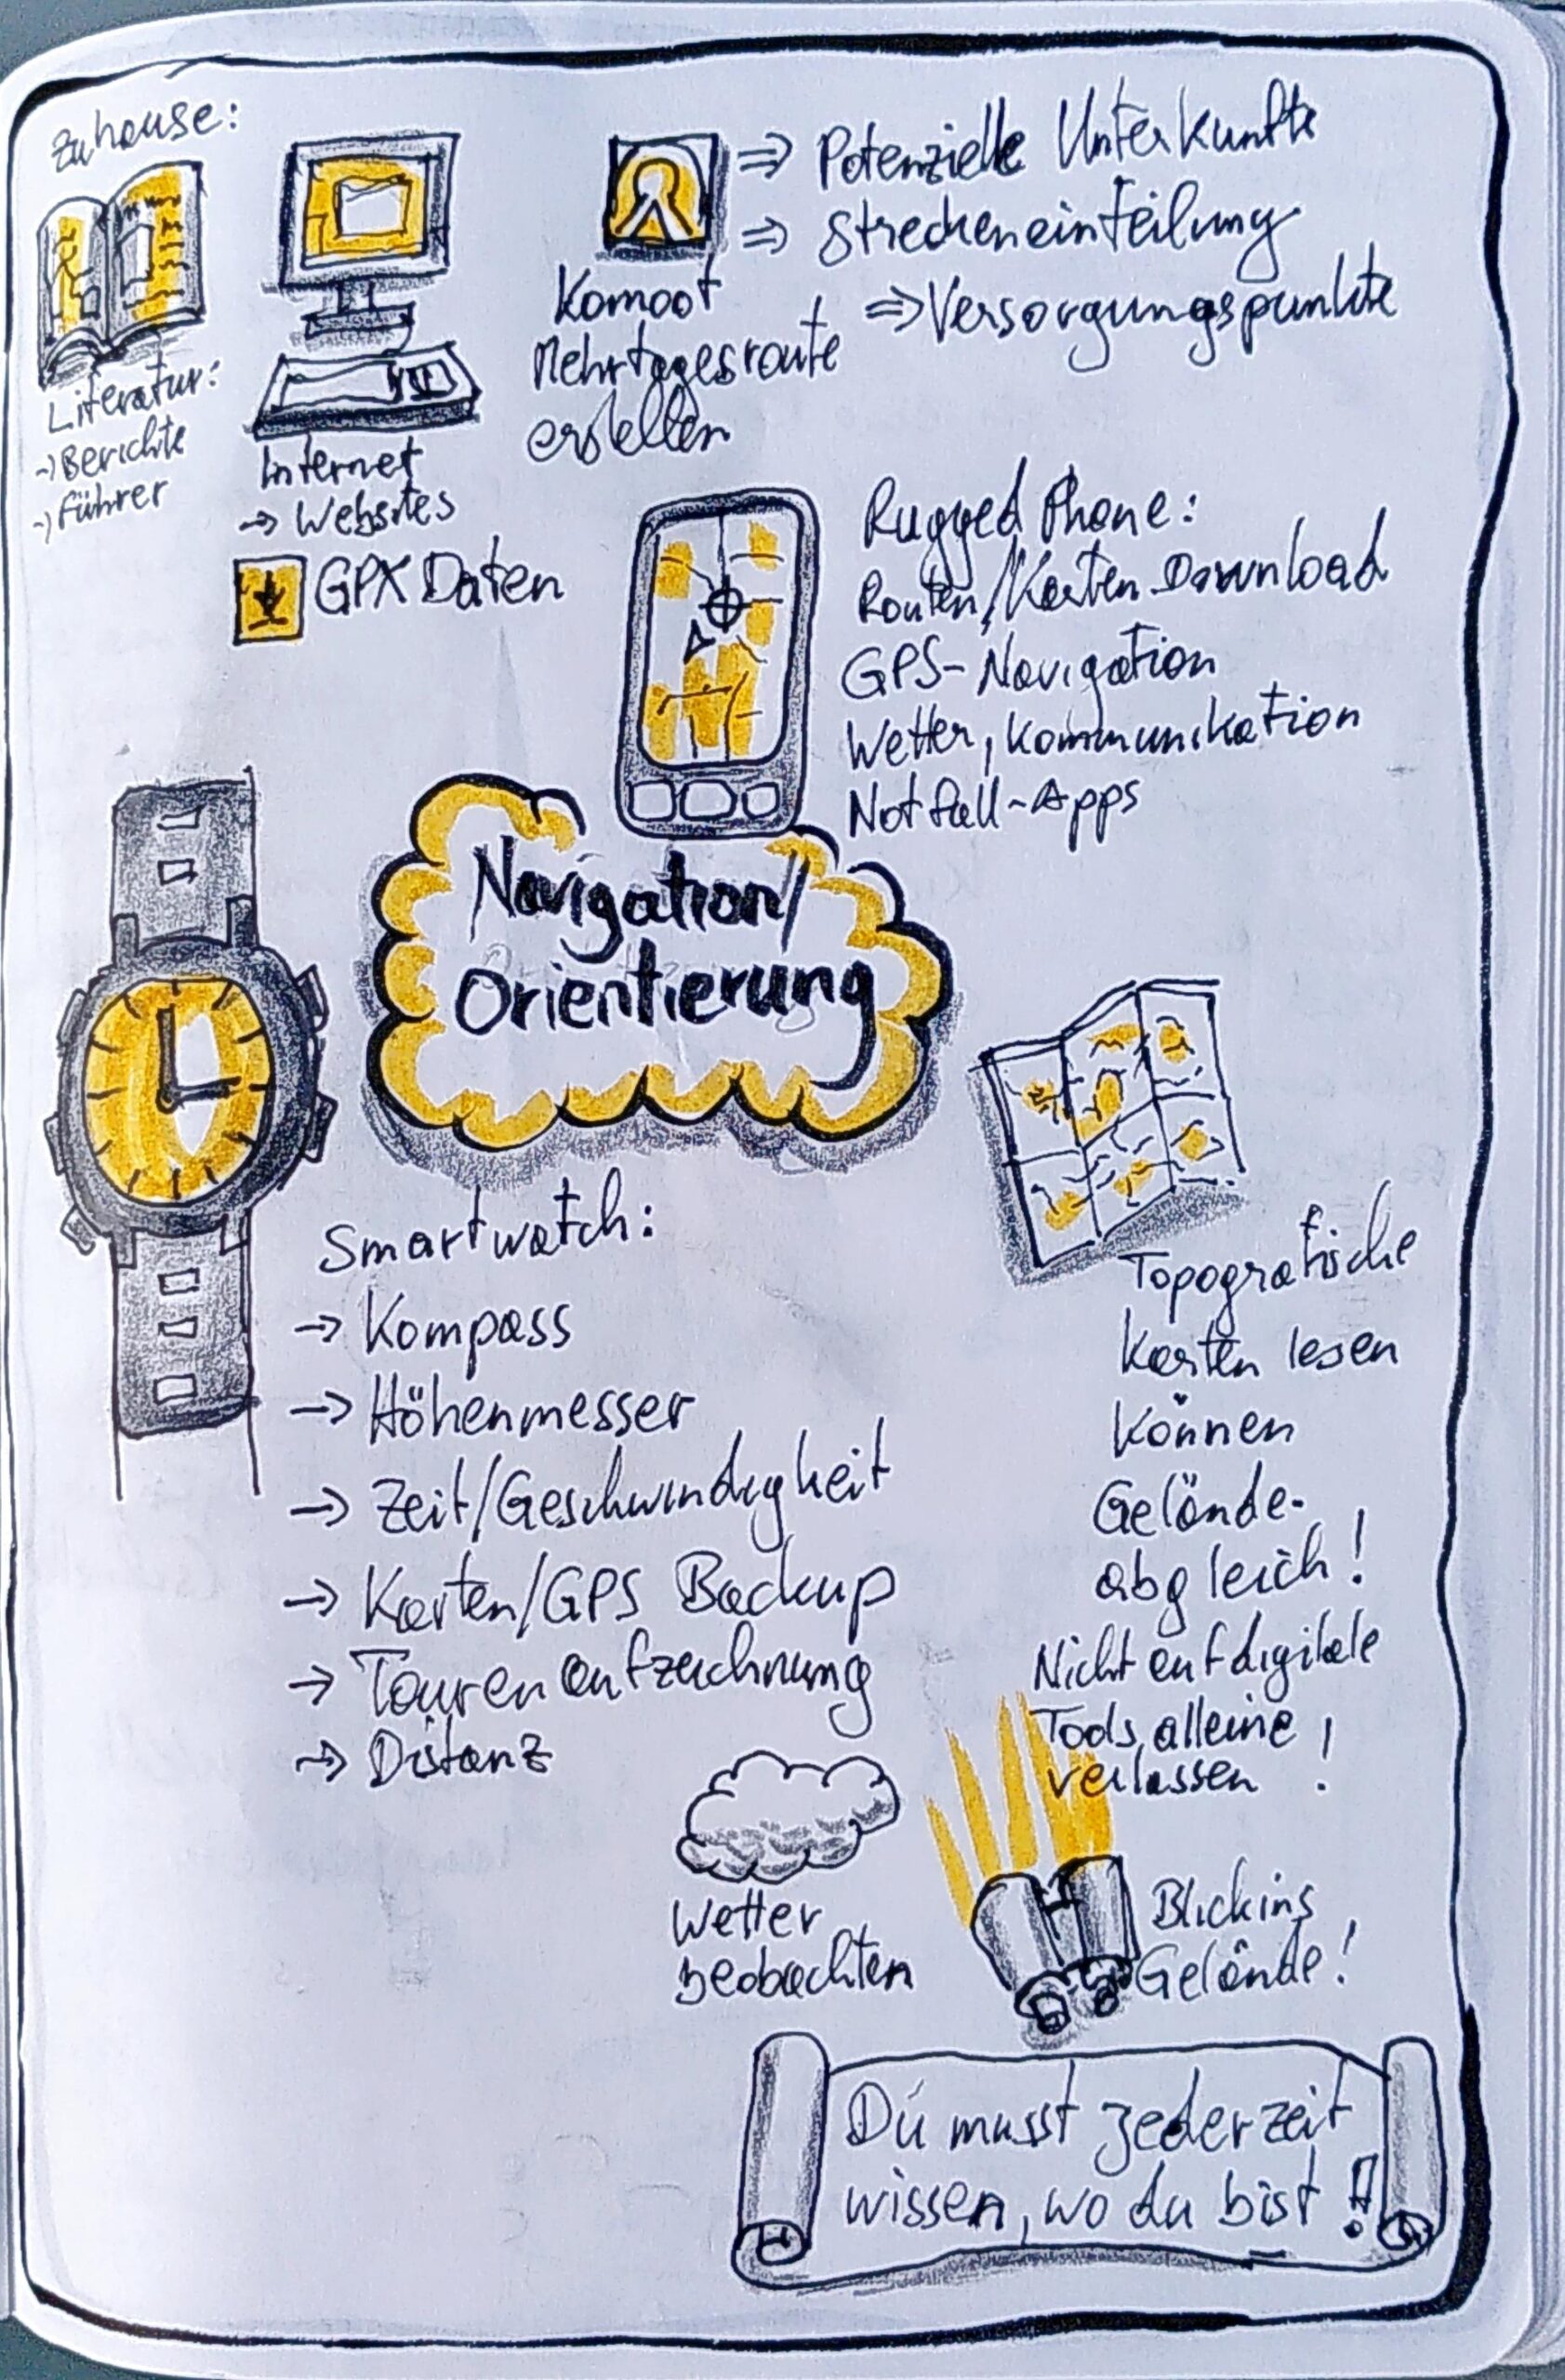 Zuhause:
Literatur:
→ Berichte
→ Führer
Internet
→ Websites
GPX Daten
Komoot
Mehrtagesroute
erstellen
⇒ Potenzielle Unterkünfte
⇒ Streckeneinteilung
⇒ Versorgungspunkte
Rugged Phone:
Routen/Karten Download
GPS-Navigation
Wetter, Kommunikation
Notfall-Apps
Navigation/
Orientierung
Smartwatch:
→ Kompass
→ Höhenmesser
→ Zeit/Geschwindigkeit
→ Karten/GPS Backup
→ Tourenaufzeichnung
→ Distanz
Topografische
Karten lesen
können
Gelände-
abgleich!
Nicht auf digitale
Tools alleine
verlassen!
Wetter
beobachten
Blick ins
Gelände!
Du musst jederzeit
wissen, wo du bist!